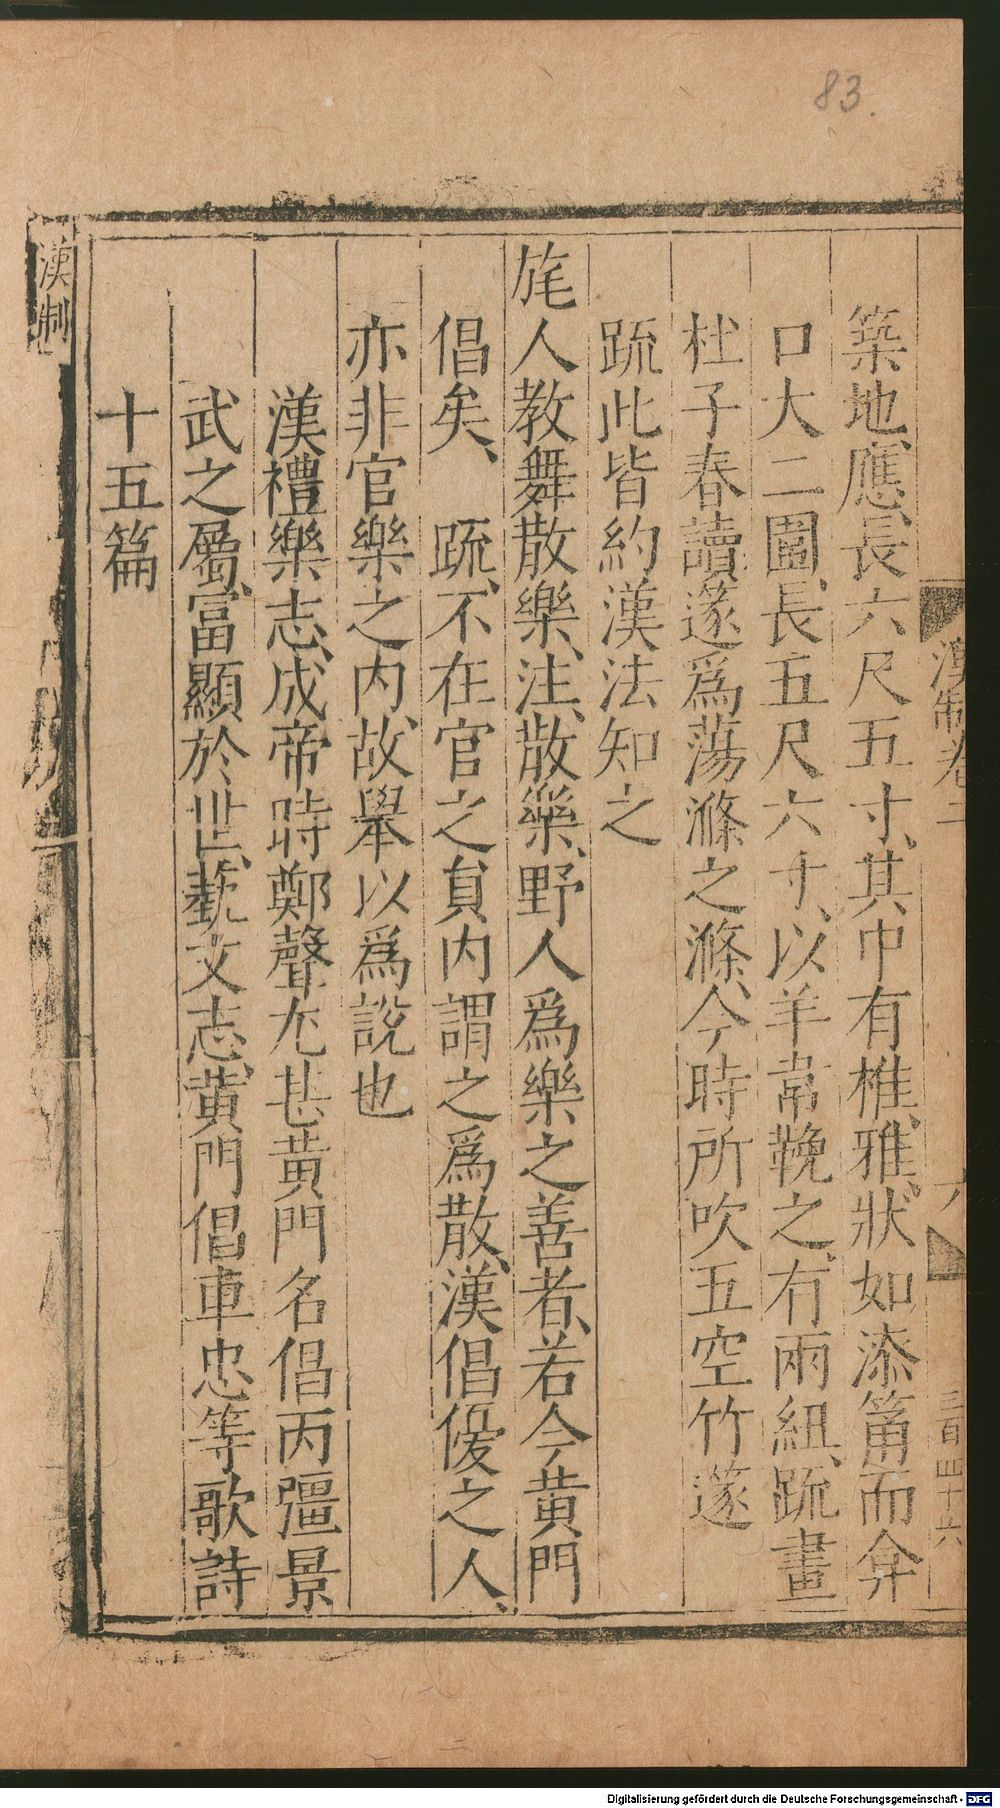 83.
漢制卷二
六
三百四十六
築地、應、長六尺五寸、其中有椎、雅、狀如漆筩而弇
口大二圍、長五尺六寸、以羊韋鞔之、有兩紐、疏畫
杜子春讀篴爲蕩滌之滌、今時所吹五空竹篴
疏此皆約漢法知之
旄人教舞散樂、注、散樂、野人爲樂之善者、若今黄門
倡矣、 疏、不在官之貟内謂之爲散、漢倡優之人、
亦非官樂之内、故舉以爲說也
漢禮樂志、成帝時鄭聲尤甚黄門名倡丙彊景
武之屬、富顯於世、藝文志、黄門倡車忠等歌詩
十五篇
漢制
Digitalisierung gefördert durch die Deutsche Forschungsgemeinschaft - DFG